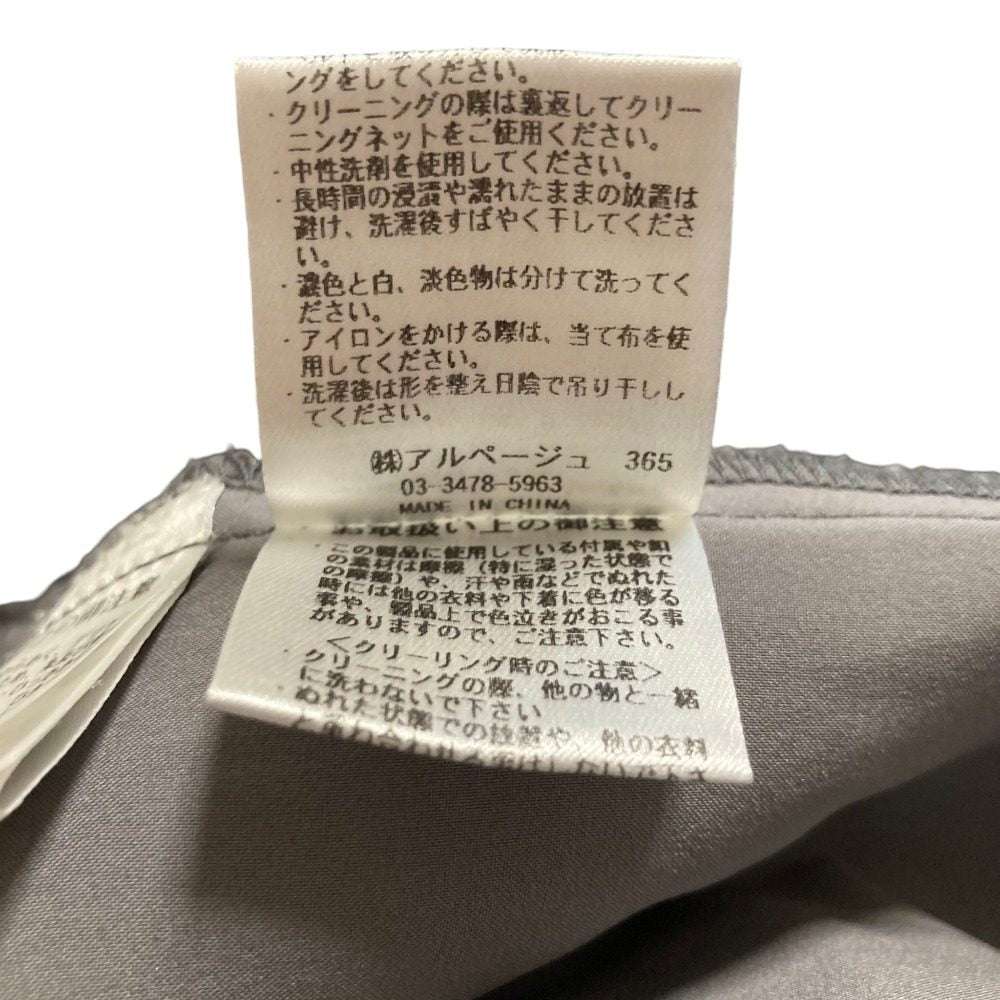 ングをしてください。
・クリーニングの際は裏返してクリー
ニングネットをご使用ください。
・中性洗剤を使用してください。
・長時間の浸漬や濡れたままの放置は
避け、洗濯後すばやく干してくださ
い。
・濃色と白、淡色物は分けて洗ってく
ださい。
・アイロンをかける際は、当て布を使
用してください。
・洗濯後は形を整え日陰で吊り干しし
てください。
㈱アルページュ 365
03-3478-5963
MADE IN CHINA
お取扱い上の御注意
・この製品に使用している付属や釦
の素材は摩擦(特に湿った状態で
の摩擦)や、汗や雨などでぬれた
時には他の衣料や下着に色が移る
事や、製品上で色泣きがおこる事
がありますので、ご注意下さい。
<クリーリング時のご注意>
・クリーニングの際、他の物と一緒
に洗わないで下さい
ぬれた状態での放置や、他の衣料